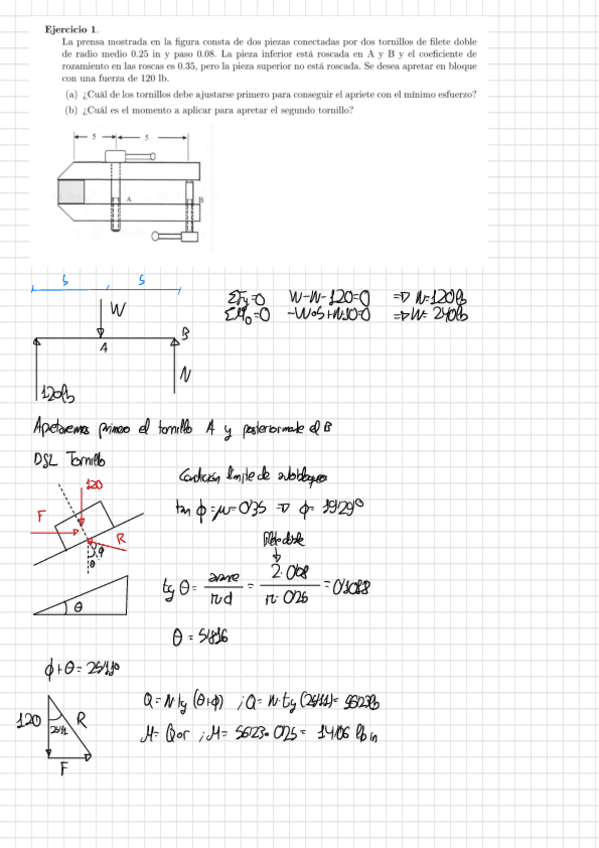 Ejercicio 1.
La prensa mostrada en la figura consta de dos piezas conectadas por dos tornillos de filete doble
de radio medio 0.25 in y paso 0.08. La pieza inferior está roscada en A y B y el coeficiente de
rozamiento en las roscas es 0.35, pero la pieza superior no está roscada. Se desea apretar en bloque
con una fuerza de 120 lb.
(a) ¿Cuál de los tornillos debe ajustarse primero para conseguir el apriete con el mínimo esfuerzo?
(b) ¿Cuál es el momento a aplicar para apretar el segundo tornillo?
5 5
A B
5 5
W
A B
N
120lb
ΣFy=0 W-N-120=0 => N=120lb
ΣM0=0 -W·5+N·10=0 => W=240lb
Apretaremos primero el tornillo A y posteriormente el B
DSL Tornillo
120
F
R
φ
θ
Condición límite de autobloqueo
tan φ=μ=0'35 => φ= 19'29º
filete doble
tg θ = avance / π d = 2·0'08 / π·0'25 = 0'1088
θ
θ =
φ+θ=25'11º
120
R
25'11
F
Q=N tg (θ+φ) ; Q= N·tg(25'11)= 56'23lb
M= Q·r ; M= 56'23·0'25= 14'06 lb in